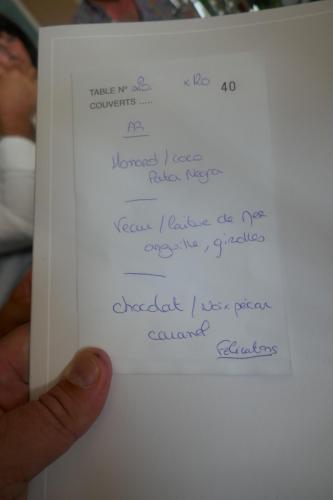 TABLE N° 28 x20 40
COUVERTS .....
AB
Homard / coco
Pata Negra
Veau / laitue de Mer
anguille, girolles
chocolat / Noix pécan
caramel
Félicitations